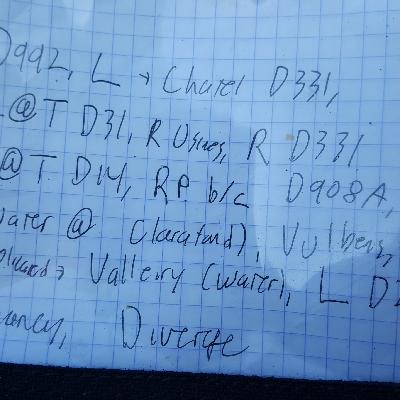 D992, L → Charel D331,
@T D31, R Usines, R D331
@T D14, RP b/c D908A,
water @ Clarafond), Vulbens,
→ Valleiry (water), L
Diverge